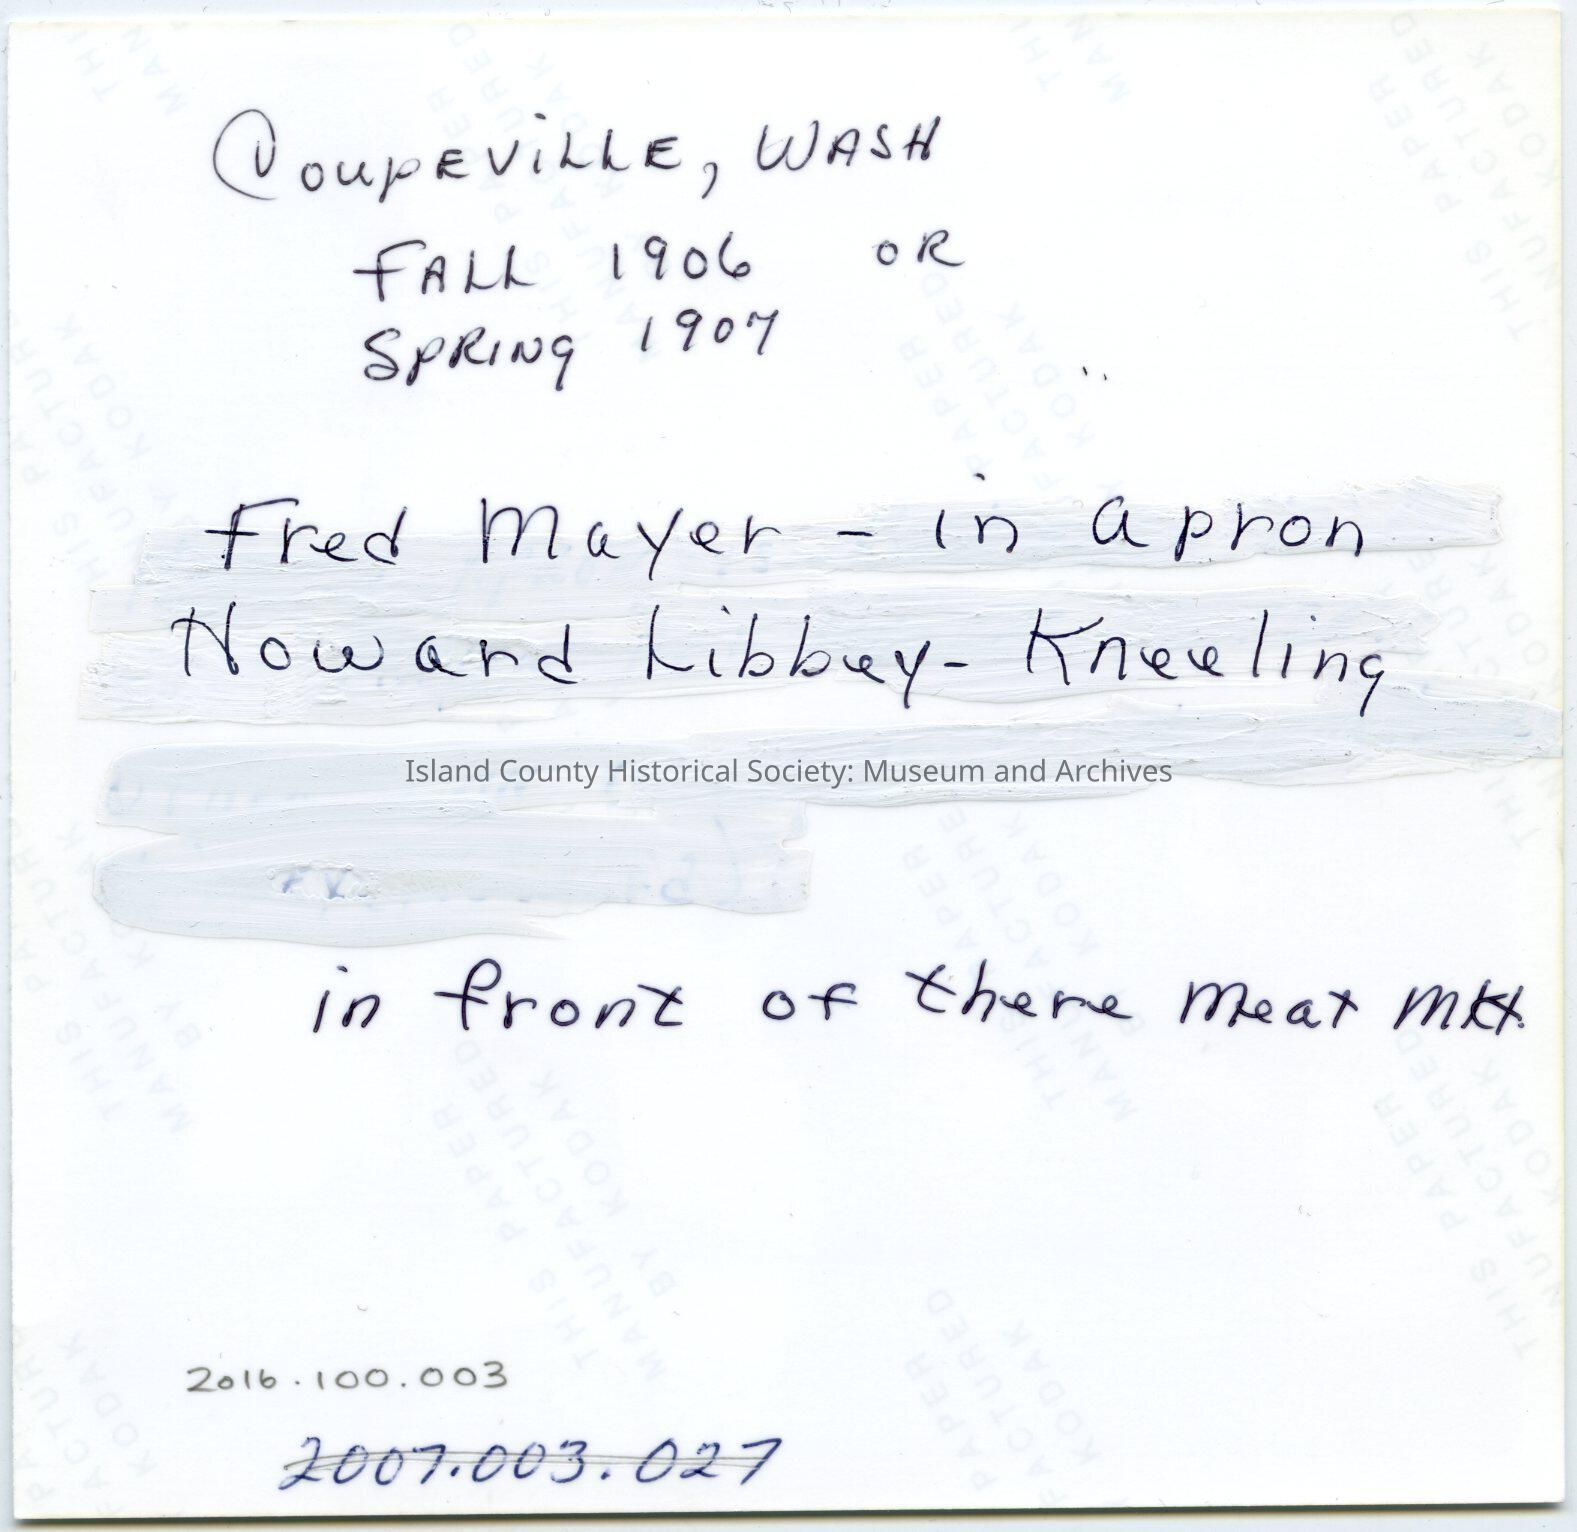 Coupeville, WASH
FALL 1906 OR
SPRING 1907
Fred Mayer - in apron
Howard Libbey - Kneeling
Island County Historical Society: Museum and Archives
in front of there meat mkt.
2016.100.003
2007.003.027
THIS PAPER
MANUFACTURED
BY KODAK